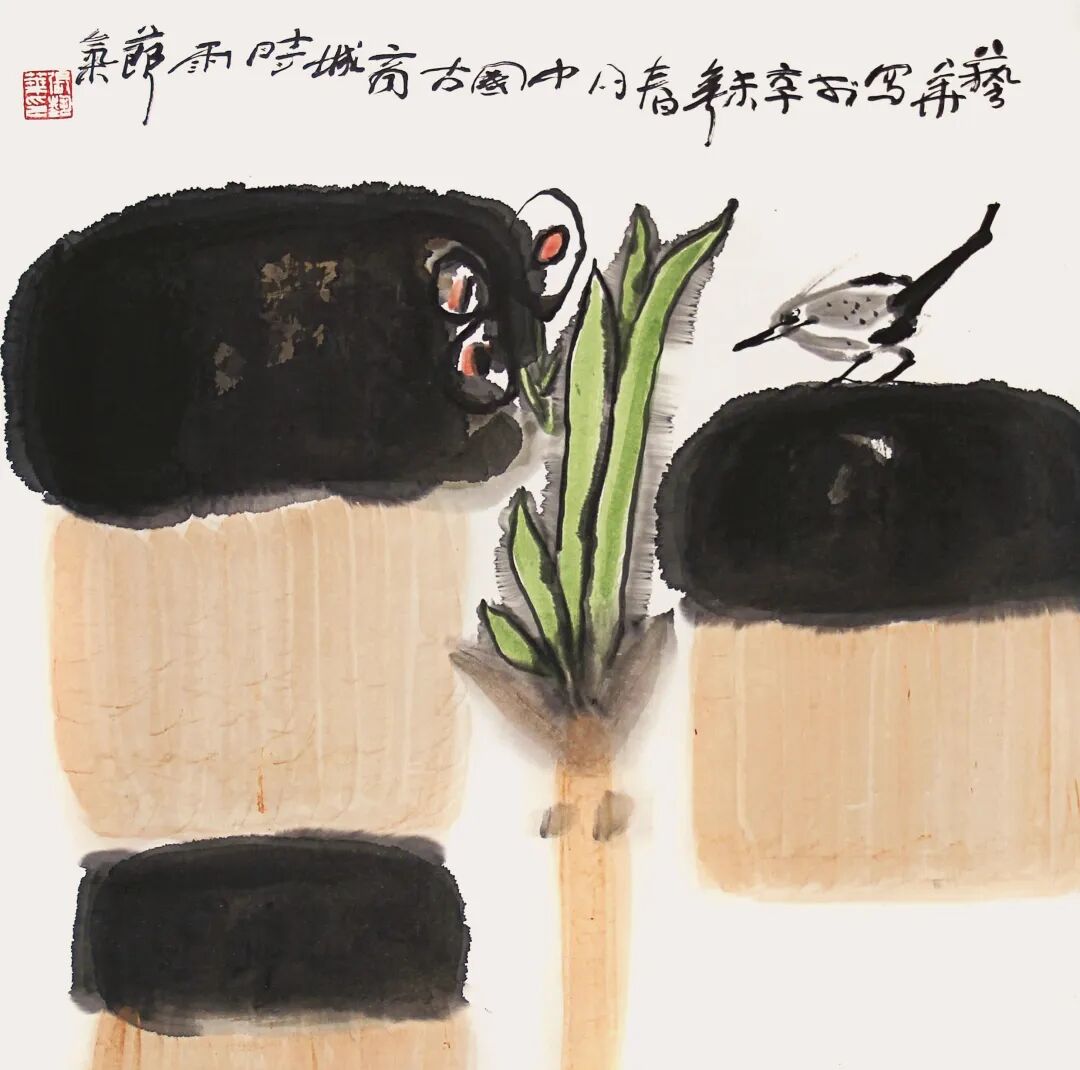 藝華写於辛未年春月中國古商城時雨節氣